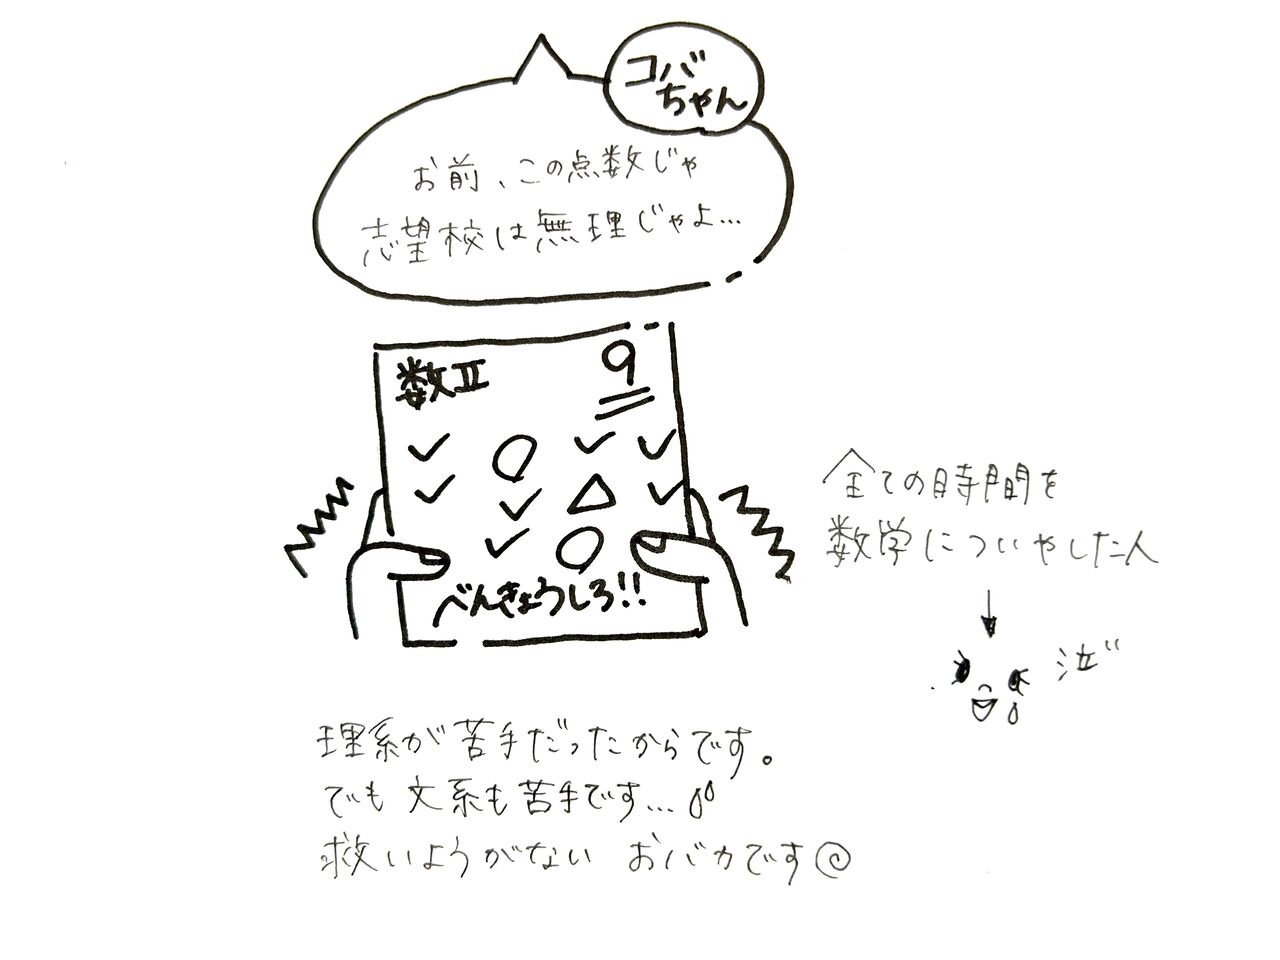 コバ
ちゃん
お前、この点数じゃ
志望校は無理じゃよ…
数Ⅱ
9
べんきょうしろ!!
全ての時間を
数学についやした人
泣"
理系が苦手だったからです。
でも文系も苦手です…
救いようがない おバカです